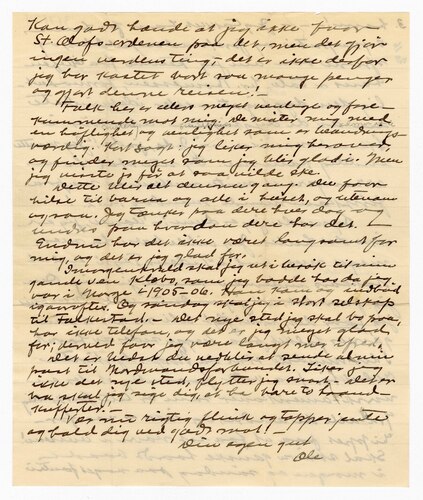 Kan godt hände at jeg ikke faar
St. Olafs ordenen paa det, men det gjør
ingen verdensting, - det er ikke derfor
jeg har kastet bort saa mange penger
og gjort denne reisen! -
Folk her er ellers meget venlige og fore-
kommende mot mig. De møter mig med
en høflighet og venlighet som er beundrings-
værdig. Kort sagt: jeg liker mig heroved,
og finder meget som jeg blir glad i. Men
jeg visste jo før at saa vilde ske.
Dette blir det denne gang. Du faar
hilse til barna og alle i huset, og utenom
ogsaa. Jeg tænker paa dere hver dag og
undres paa hvordan dere har det. -
Endnu har det ikke været langsomt for
mig, og det er jeg glad for.
Imorgenkveld skal jeg ut i besøk til min
gamle ven Klebo, som jeg bodde hos da jeg
var i Norge i 1905-06. Ham kom og indbød
igaar. Og søndag skal jeg i stort selskap
til Falkestad. - Det nye sted jeg skal bo paa,
har ikke telefon, og det er jeg meget glad
for; derved faar jeg være langt mer i fred.
Det er bedst du vedblir at sende al min
post til Nordmandsforbundet. Liker jeg
ikke det nye sted, flytter jeg snart - det er
bra skal jeg sige dig, at ha bare to haand-
kufferter. -
Vær nu rigtig flink og tapper jente
og hold dig ved godt mot -
Din egen gut
Ole